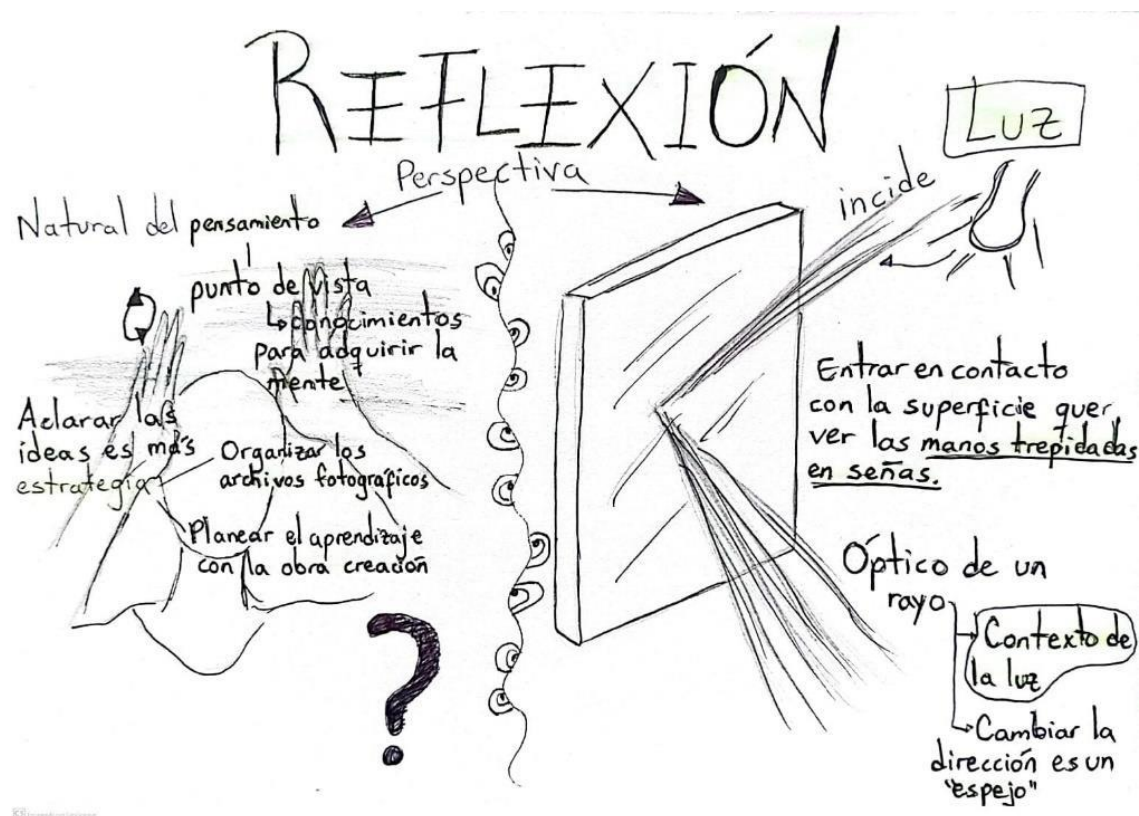 REFLEXIÓN
Perspectiva
Natural del pensamiento
punto de vista
conocimientos
para adquirir la
mente
Aclarar las
ideas es más
estrategia
Organizar los
archivos fotográficos
Planear el aprendizaje
con la obra creación
?
Luz
incide
Entrar en contacto
con la superficie quer
ver las manos trepidadas
en señas.
Óptico de un
rayo
Contexto de
la luz
Cambiar la
dirección es un
"espejo"